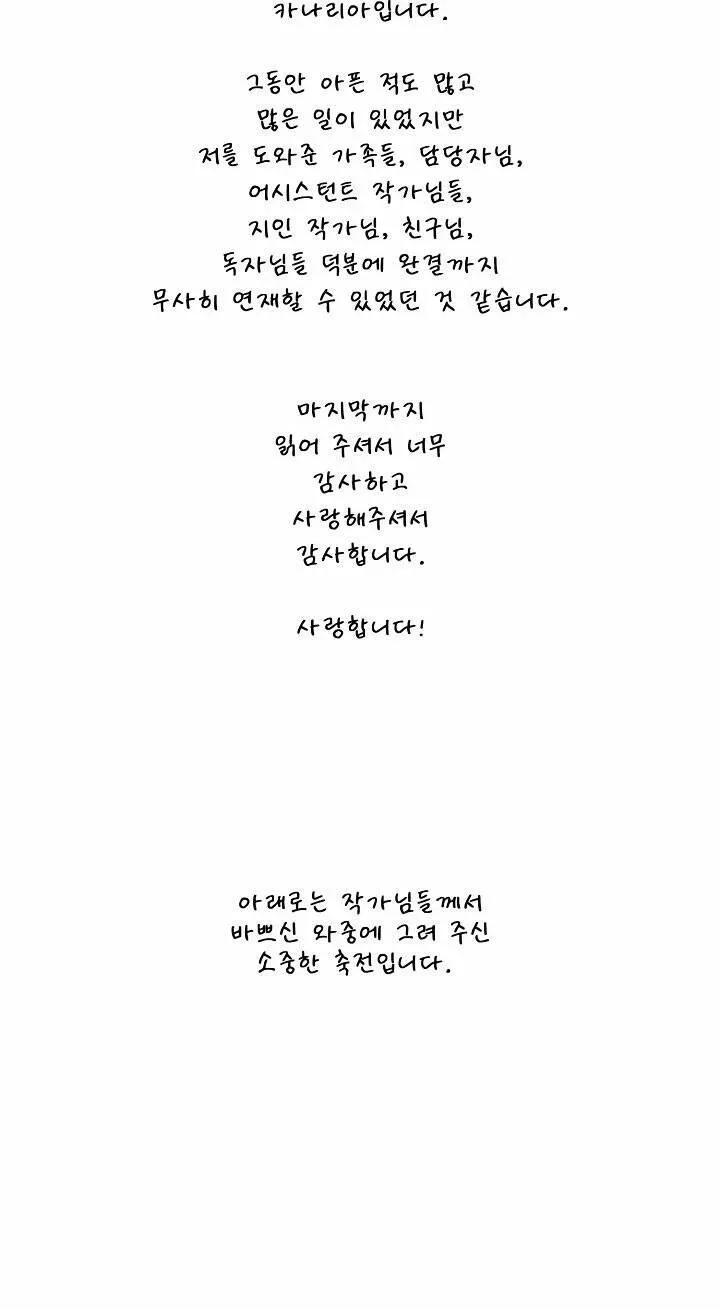 카나리아입니다.
그동안 아픈 적도 많고
많은 일이 있었지만
저를 도와준 가족들, 담당자님,
어시스턴트 작가님들,
지인 작가님, 친구님,
독자님들 덕분에 완결까지
무사히 연재할 수 있었던 것 같습니다.
마지막까지
읽어 주셔서 너무
감사하고
사랑해주셔서
감사합니다.
사랑합니다!
아래로는 작가님들께서
바쁘신 와중에 그려 주신
소중한 축전입니다.